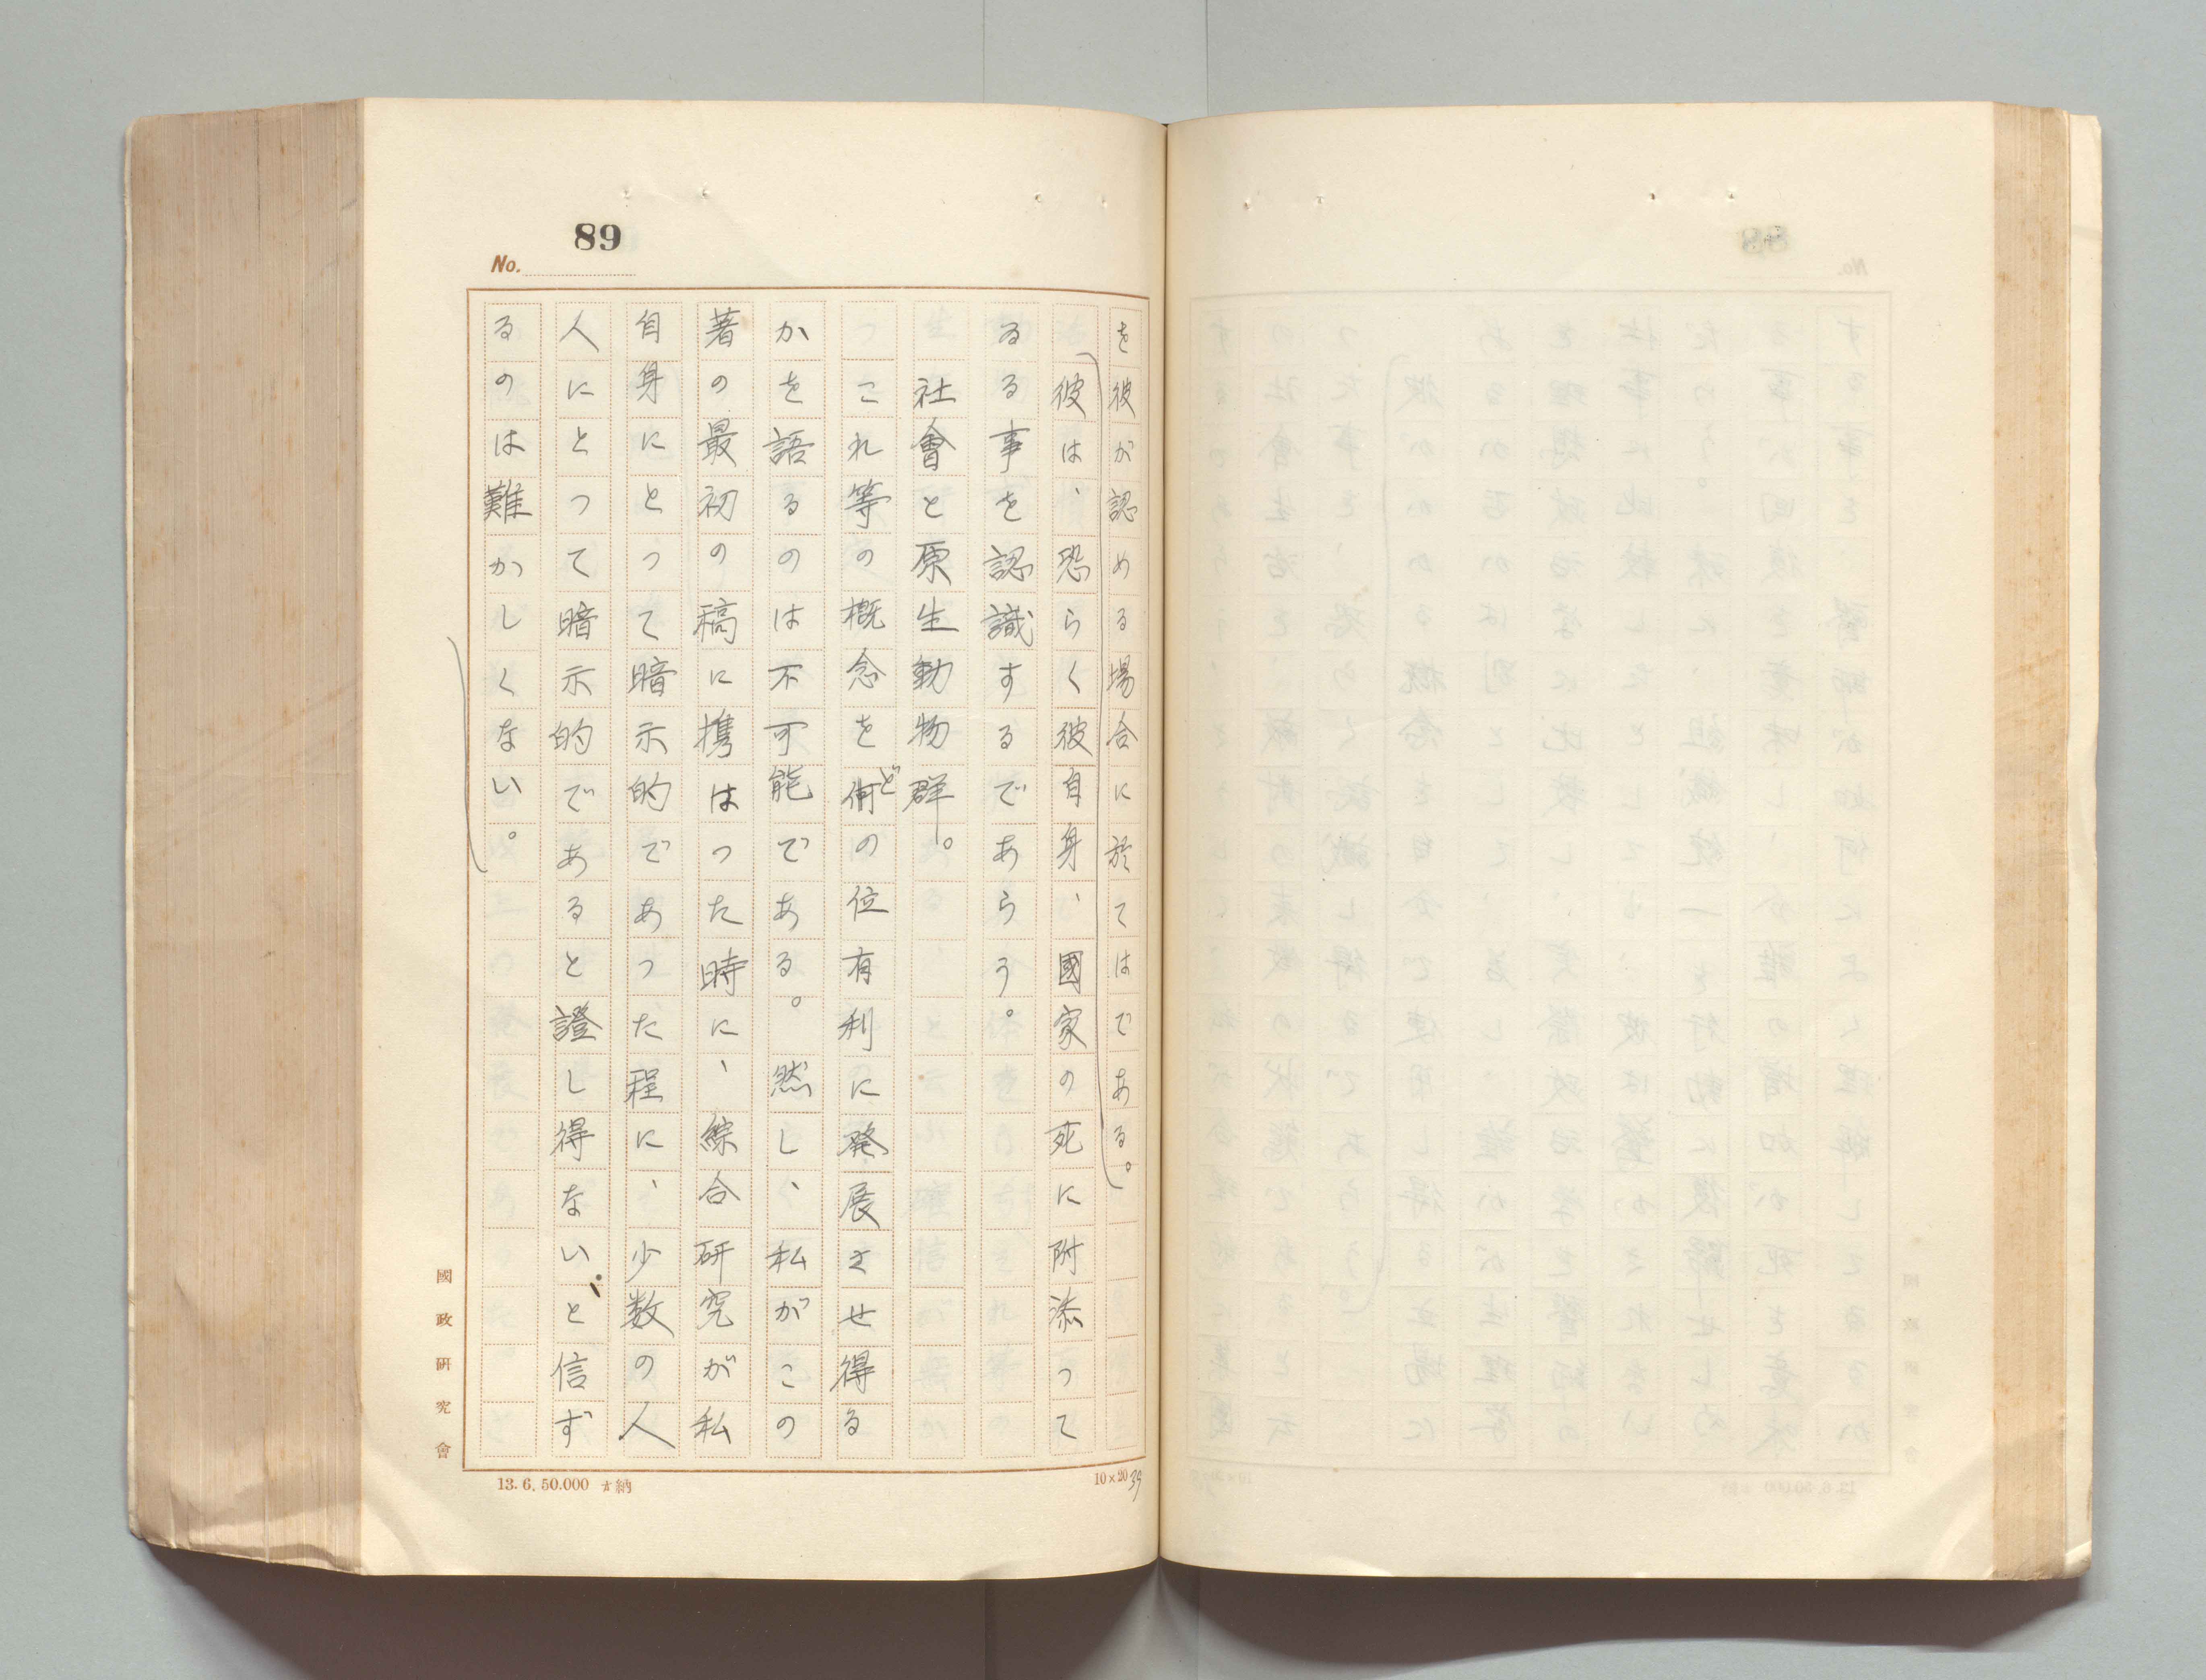 89
No.
を彼が認める場合に於てはである。
彼は、恐らく彼自身、國家の死に附添つて
るる事を認識するであらう。
社會と原生動物群。
これ等の概念を何の位有利に発展させ得る
ど
かを語るのは不可能である。然し、私がこの
著の最初の稿に携はつた時に、綜合研究が私
自身にとつて暗示的であつた程に、少数の人
人にとつて暗示的であると證し得ないと信ず
るのは難かしくない。
國政研究會
10×20
39
13.6.50.000